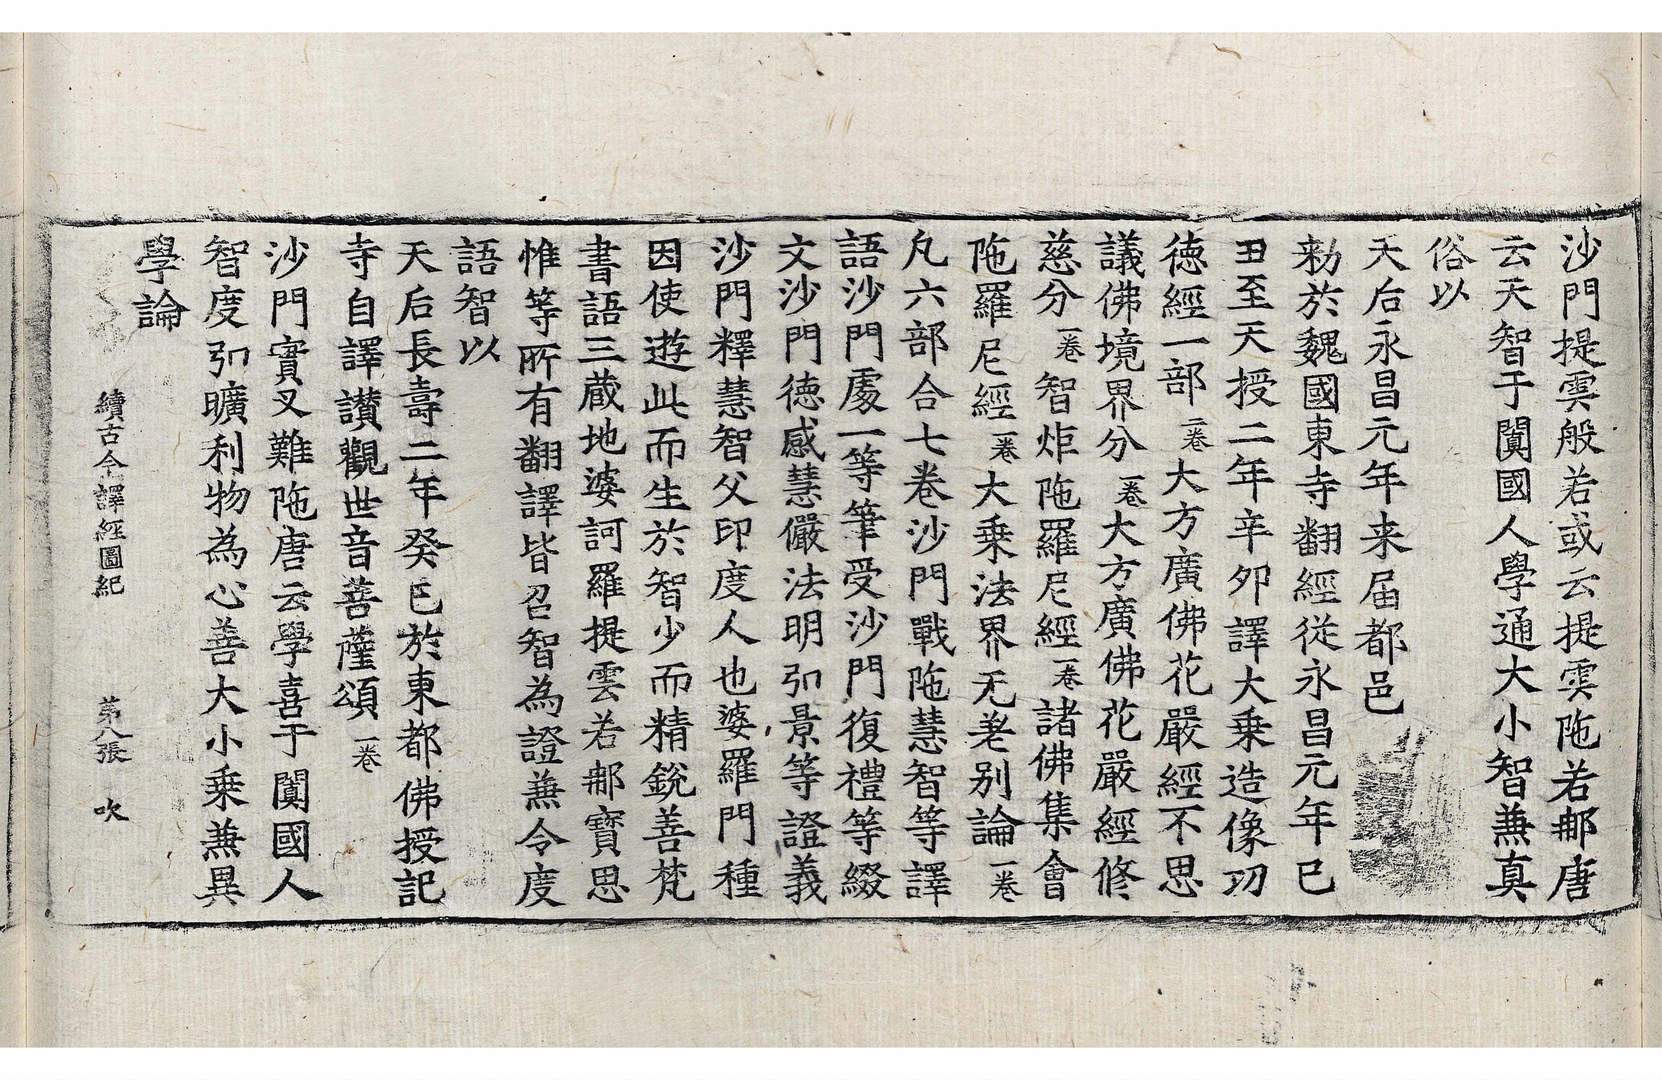 沙門提雲般若或云提雲陁若那唐
云天智于闐國人學通大小智兼真
俗以
天后永昌元年来届都邑
勑於魏國東寺翻經從永昌元年巳
丑至天授二年辛夘譯大乗造像功
徳經一部二卷大方廣佛花嚴經不思
議佛境界分一卷大方廣佛花嚴經修
慈分一卷智炬陁羅尼經一卷諸佛集會
陁羅尼經一卷大乗法界无差别論一卷
凡六部合七卷沙門戰陁慧智等譯
語沙門處一等筆受沙門復禮等綴
文沙門德感慧儼法明弘景等證義
沙門釋慧智父印度人也婆羅門種
因使遊此而生於智少而精銳善梵
書語三蔵地婆訶羅提雲若那寶思
惟等所有翻譯皆召智為證兼令度
語智以
天后長壽二年癸巳於東都佛授記
寺自譯讃觀世音菩薩頌一卷
沙門實叉難陁唐云學喜于闐國人
智度弘曠利物為心善大小乗兼異
學論
續古今譯經圖紀 第八張 吹